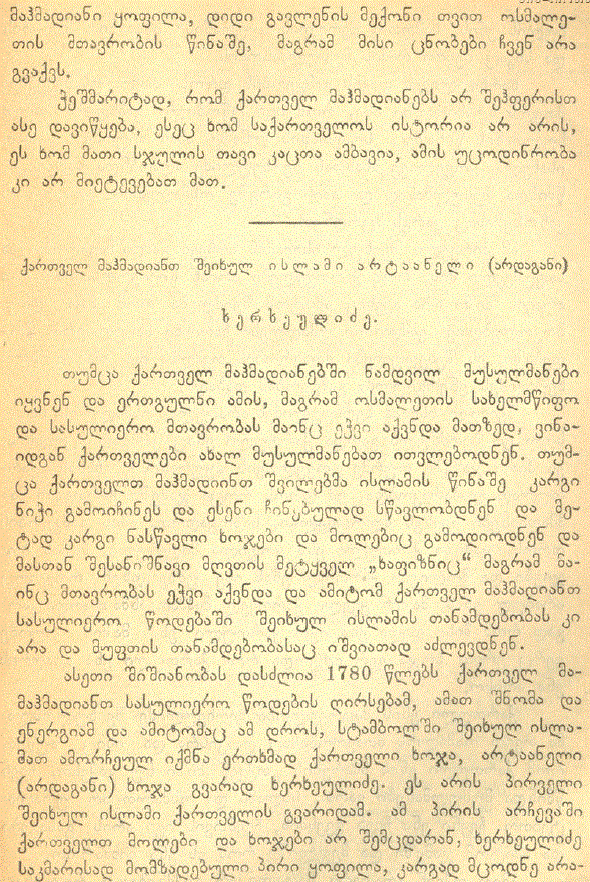 მაჰმადიანი ყოფილა, დიდი გავლენის მექონი თვით ოსმალე-
თის მთავრობის წინაშე, მაგრამ მისი ცნობები ჩვენ არა
გვაქვს.
ჭეშმარიტად, რომ ქართველ მაჰმადიანებს არ შეჰფერისთ
ასე დავიწყება, ესეც ხომ საქართველოს ისტორია არ არის,
ეს ხომ მათი სჯულის თავი კაცთა ამბავია, ამის უცოდინრობა
კი არ მიეტევებათ მათ.
ქართველ მაჰმადიანთ შეიხულ ისლამი არტაანელი (არდაგანი)
ხერხეულიძე.
თუმცა ქართველ მაჰმადიანებში ნამდვილ მუსულმანები
იყვნენ და ერთგულნი ამის, მაგრამ ოსმალეთის სახელმწიფო
და სასულიერო მთავრობას მაინც ეჭვი აქვნდა მათზედ, ვინა-
იდგან ქართველები ახალ მუსულმანებათ ითვლებოდნენ. თუმ-
ცა ქართველთ მაჰმადიინთ შვილებმა ისლამის წინაშე კარგი
ნიჭი გამოიჩინეს და ესენი ჩინებულად სწავლობდნენ და მე-
ტად კარგი ნასწავლი ხოჯები და მოლებიც გამოდიოდნენ და
მასთან შესანიშნავი მღვთის მეტყველ „ხაფიზნიც“ მაგრამ მა-
ინც მთავრობას ეჭვი აქვნდა და ამიტომ ქართველ მაჰმადიანთ
სასულიერო წოდებაში შეიხულ ისლამის თანამდებობას კი
არა და მუფთის თანამდებობასაც იშვიათად აძლევდნენ.
ასეთი შიშიანობას დასძლია 1780 წლებს ქართველ მა-
მაჰმადიანთ სასულიერო წოდების ღირსებამ, ამათ შნომა და
ენერგიამ და ამიტომაც ამ დროს, სტამბოლში შეიხულ ისლა-
მათ ამორჩეულ იქმნა ერთხმად ქართველი ხოჯა, არტაანელი
(არდაგანი) ხოჯა გვარად ხერხეულიძე. ეს არის პირველი
შეიხულ ისლამი ქართველის გვარიდამ. ამ პირის არჩევაში
ქართველთ მოლები და ხოჯები არ შემცდარან, ხერხეულიძე
საკმარისად მომზადებული პირი ყოფილა, კარგად მცოდნე არა-